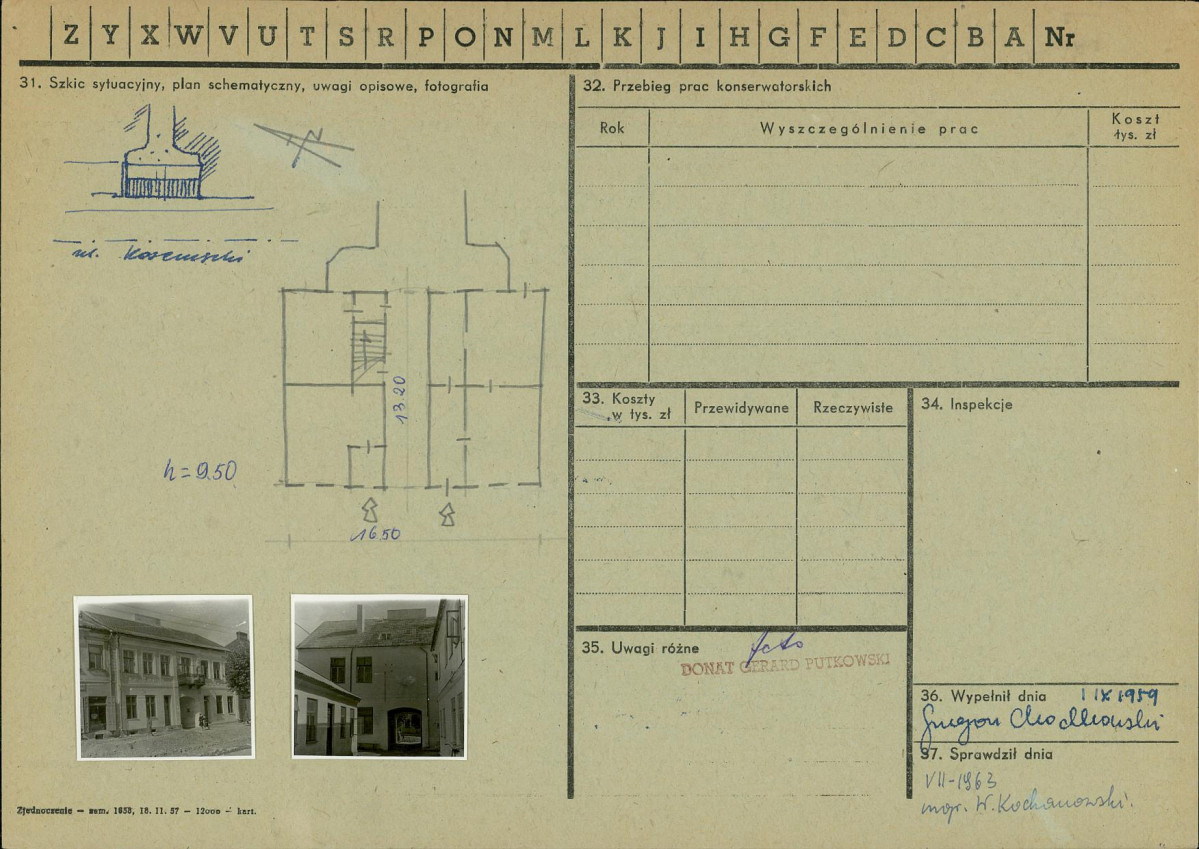 Z Y X W V U T S R P O N M L K J I H G F E D C B A Nr
31. Szkic sytuacyjny, plan schematyczny, uwagi opisowe, fotografia
ul.
13.20
h = 9.50
16.50
Zjednoczenie — zam. 1958, 18. II. 57 — 12000 — kart.
32. Przebieg prac konserwatorskich
Rok
Wyszczególnienie prac
Koszt
tys. zł
33. Koszty
w tys. zł
Przewidywane
Rzeczywiste
34. Inspekcje
35. Uwagi różne
foto
DONAT GERARD PUTKOWSKI
36. Wypełnił dnia 1 IX 1959
37. Sprawdził dnia
VII-1963
mgr. W. Kochanowski.